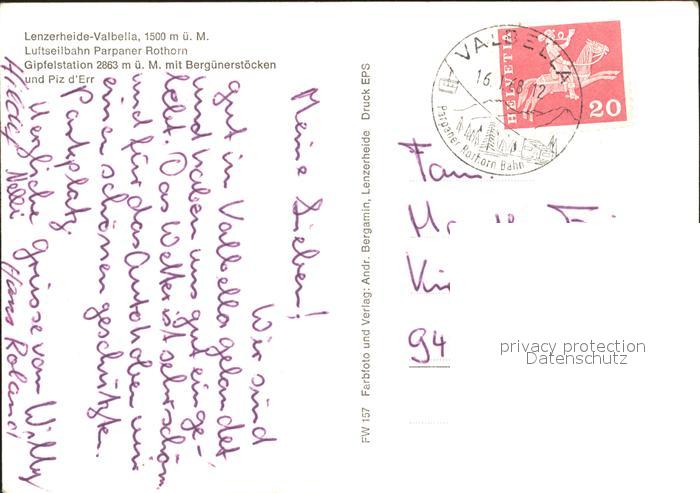 Lenzerheide-Valbella, 1500 m ü. M.
Luftseilbahn Parpaner Rothorn
Gipfelstation 2863 m ü. M. mit Bergünerstöcken
und Piz d'Err
Meine Lieben!
Wir sind
gut in Valbella gelandet
und haben uns gut einge-
lebt. Das Wetter ist sehr schön
und für das Auto haben wir
einen schönen geschützten
Parkplatz.
Herzliche Grüsse von Willy
Nelli Hans Roland
FW 157 Farbfoto und Verlag: Andr. Bergamin, Lenzerheide Druck EPS
VALBELLA
16. 12
Parpaner Rothorn Bahn
HELVETIA
20
Fam.
94
privacy protection
Datenschutz